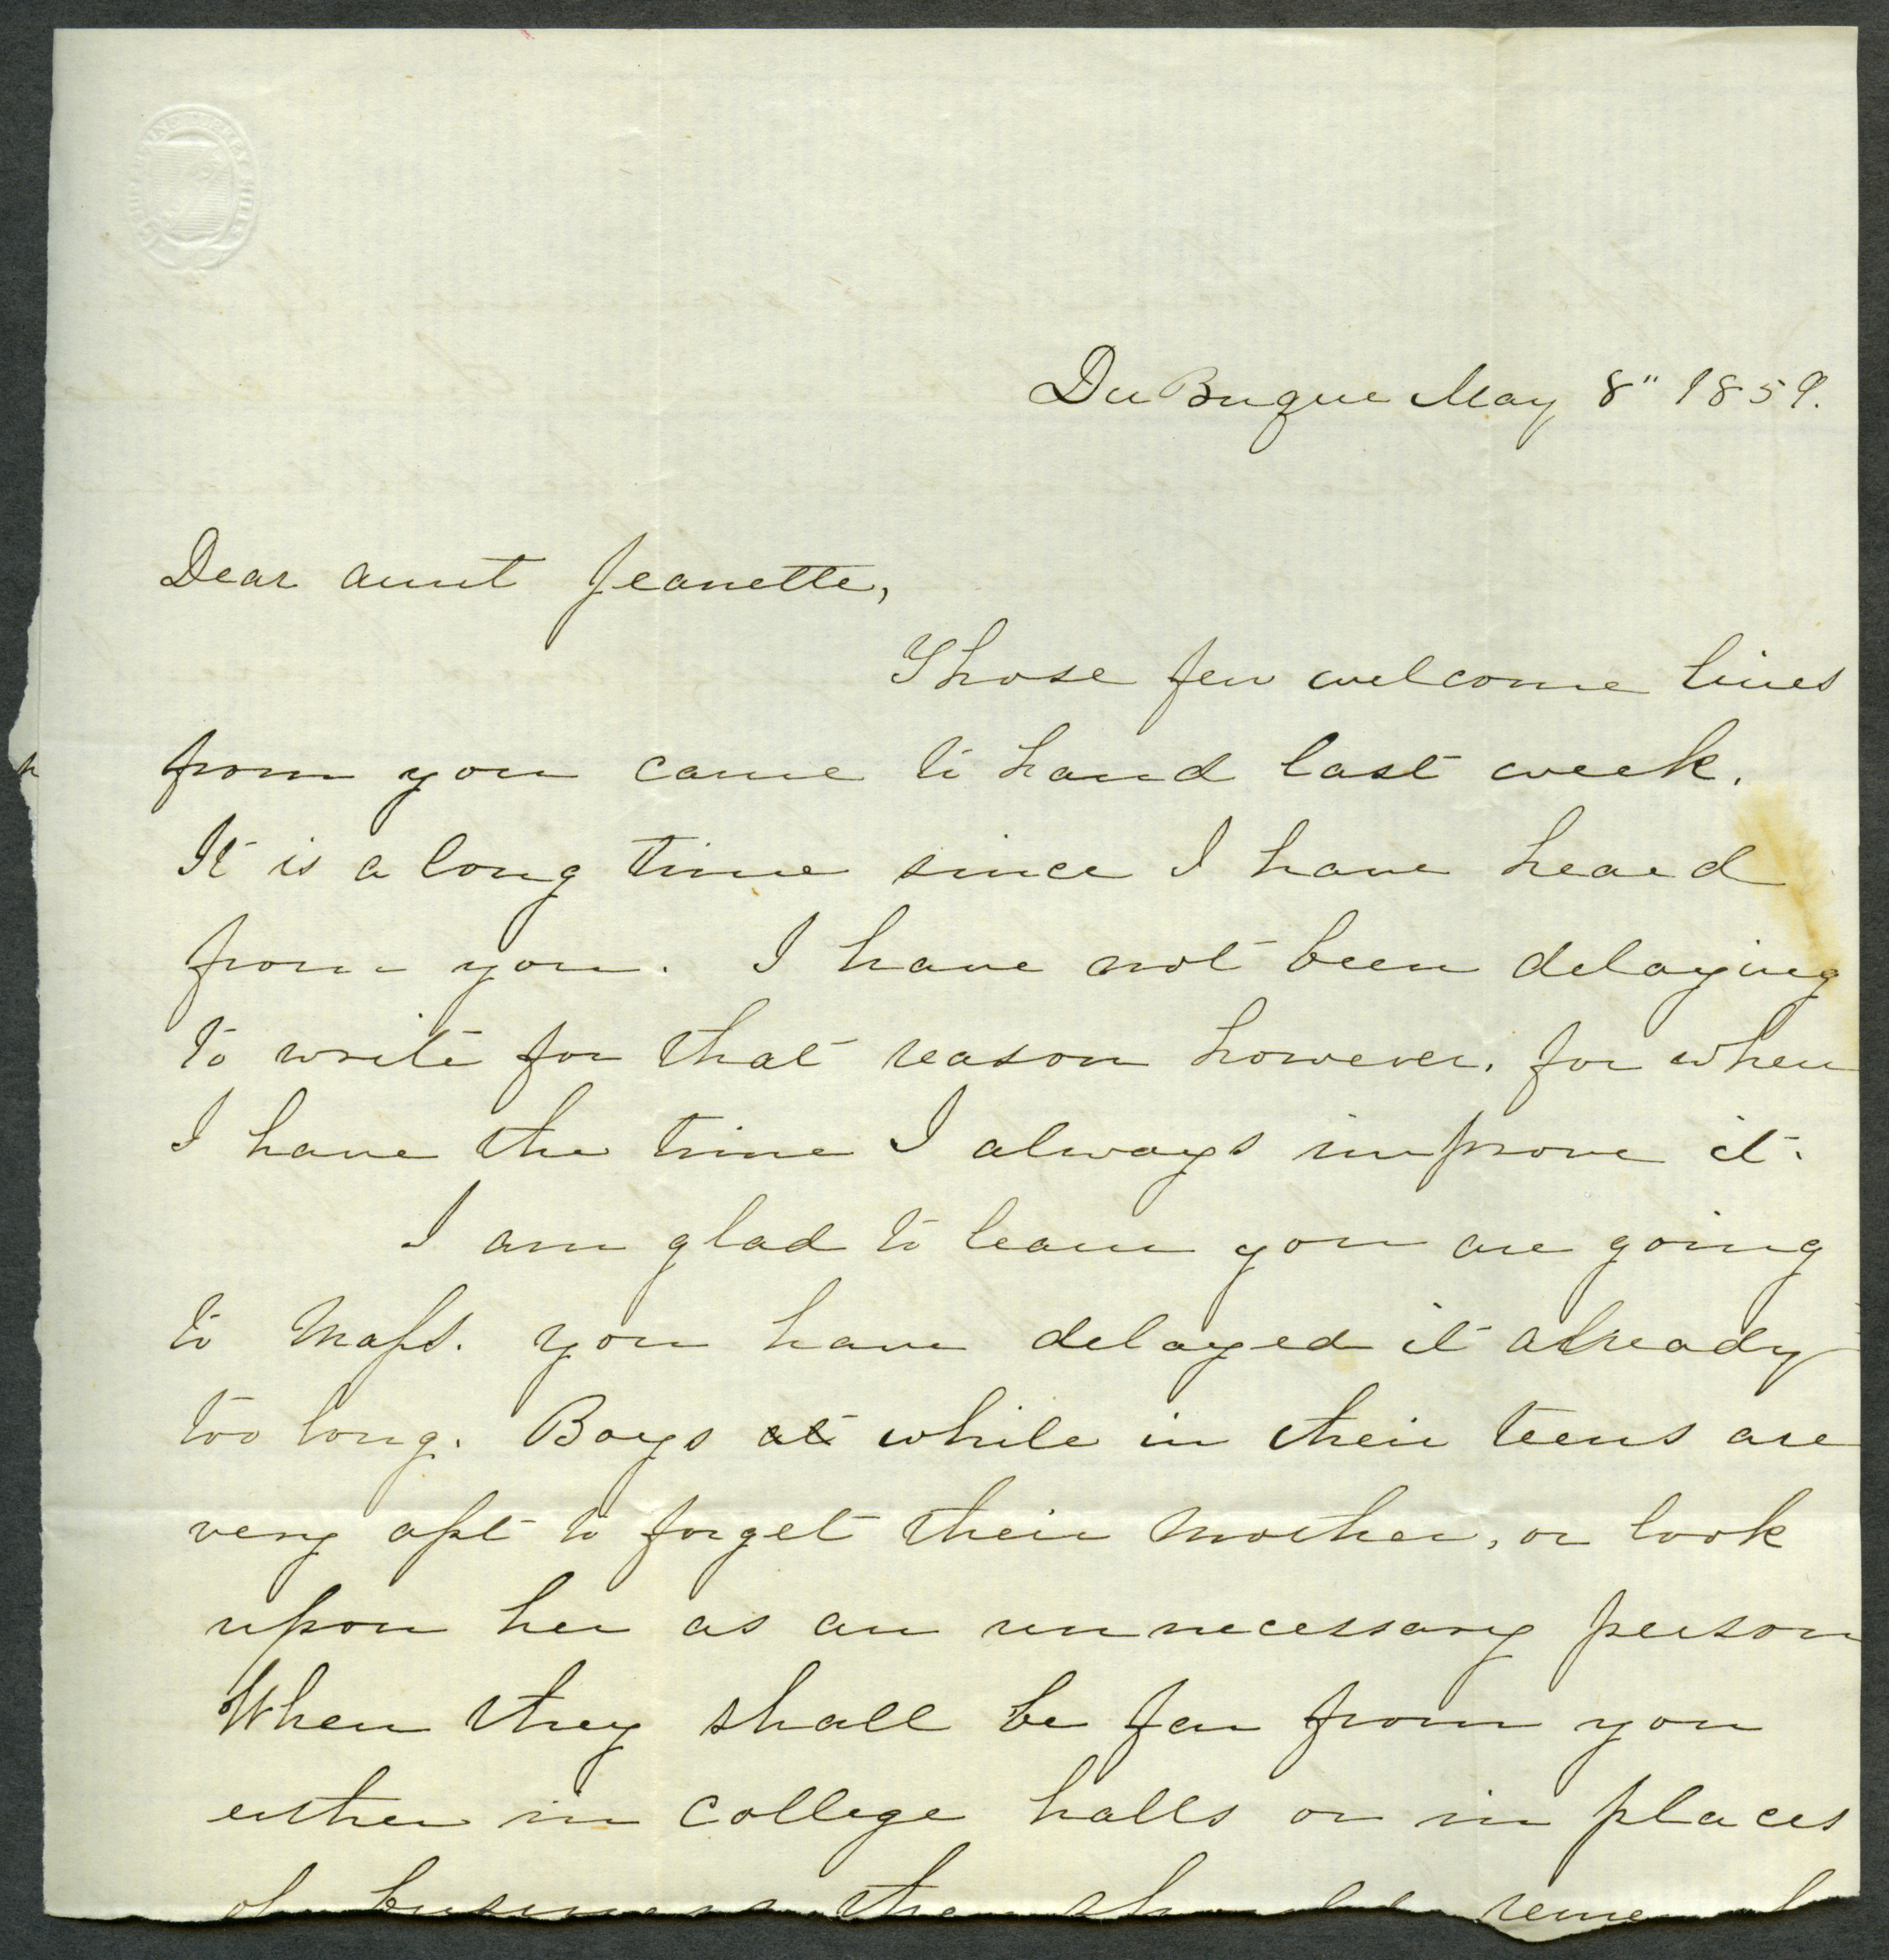 Du Buque May 8" 1859.
Dear aunt Jeanette,
Those few welcome lines
from you came to hand last week.
It is a long time since I have heard
from you. I have not been delaying
to write for that reason however, for when
I have the time I always improve it.
I am glad to learn you are going
to Mass. you have delayed it already
too long. Boys at while in their teens are
very apt to forget their mother, or look
upon her as an unnecessary person
When they shall be far from you
either in college halls or in places
of business they should